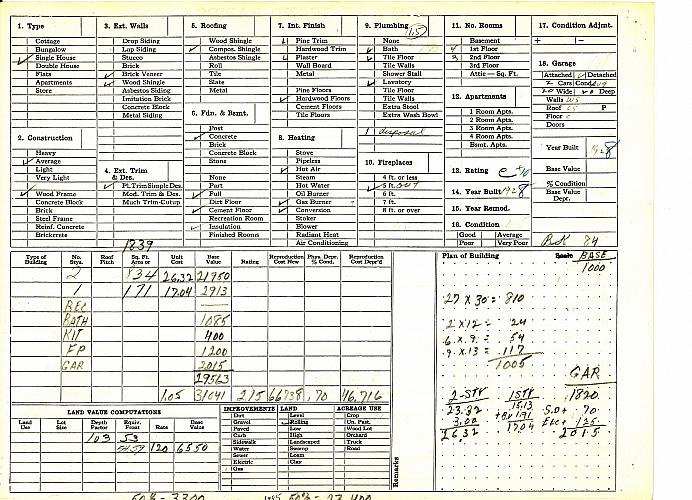 1. Type
Cottage
Bungalow
Single House
Double House
Flats
Apartments
Store
2. Construction
Heavy
Average
Light
Very Light
Wood Frame
Concrete Block
Brick
Steel Frame
Reinf. Concrete
Brickcrete
3. Ext. Walls
Drop Siding
Lap Siding
Stucco
Brick
Brick Veneer
Wood Shingle
Asbestos Siding
Imitation Brick
Concrete Block
Metal Siding
4. Ext. Trim & Des.
Pl. Trim Simple Des.
Mod. Trim & Des.
Much Trim-Cutup
1839
5. Roofing
Wood Shingle
Compos. Shingle
Asbestos Shingle
Roll
Tile
Slate
Metal
6. Fdn. & Bsmt.
Post
Concrete
Brick
Concrete Block
Stone
None
Part
Full
Dirt Floor
Cement Floor
Recreation Room
Insulation
Finished Rooms
7. Int. Finish
Pine Trim
Hardwood Trim
Plaster
Wall Board
Metal
Pine Floors
Hardwood Floors
Cement Floors
Tile Floors
8. Heating
Stove
Pipeless
Hot Air
Steam
Hot Water
Oil Burner
Gas Burner
Conversion
Stoker
Blower
Radiant Heat
Air Conditioning
9. Plumbing 1.5
None
Bath
Tile Floor
Tile Walls
Shower Stall
Lavatory
Tile Floor
Tile Walls
Extra Stool
Extra Wash Bowl
1 disposal
10. Fireplaces
4 ft. or less
5 ft. out
6 ft.
7 ft.
8 ft. or over
11. No. Rooms
Basement
4 1st Floor
3 2nd Floor
3rd Floor
Attic — Sq. Ft.
12. Apartments
1 Room Apts.
2 Room Apts.
3 Room Apts.
4 Room Apts.
Bsmt. Apts.
13. Rating C +10
14. Year Built 1928
15. Year Remod.
16. Condition
Good Average
Poor Very Poor
17. Condition Adjmt.
+ —
18. Garage
Attached Detached
2 Cars Cond.
20 Wide 20 Deep
Walls WS
Roof CS P
Floor C
Doors
Year Built 1928
Base Value
% Condition
Base Value Depr.
BK 84
Type of Building No. Stys. Roof Pitch Sq. Ft. Area or Unit Cost Base Value Rating Reproduction Cost New Phys. Depr. % Cond. Reproduction Cost Depr'd
2 834 26.32 21950
1 171 17.04 2913
REC
BATH 1085
KIT 400
FP 1200
GAR 2015
29563
1.05 31041 2.15 66738 .70 46,716
LAND VALUE COMPUTATIONS
Land Use Lot Size Depth Factor Equiv. Front Rate Base Value
103 53
120 6550
50% = 3300
IMPROVEMENTS
Dirt
Gravel
Paved
Curb
Sidewalk
Water
Sewer
Electric
Gas
LAND
Level
Rolling
Low
High
Landscaped
Swamp
Loam
Clay
ACREAGE USE
Crop
Un. Past.
Wood Lot
Orchard
Truck
Road
Remarks
1985 50% = 23,400
Plan of Building Scale BASE
1000
27 x 30 = 810
2 x 12 = 24
6 x 9 = 54
9 x 13 = 117
1005
GAR
1820
S.O + 70
Elec + 125
2015
2-STY
23.32
3.00
26.32
1STY
15.13
+ Bk 1.91
17.04